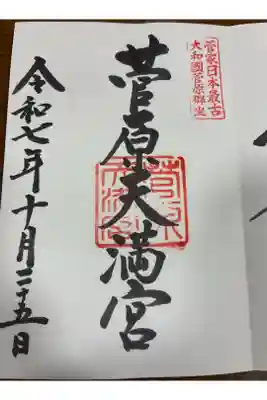 菅家日本最古
大和國菅原鎮坐
菅原天満宮
令和七年十月二十五日